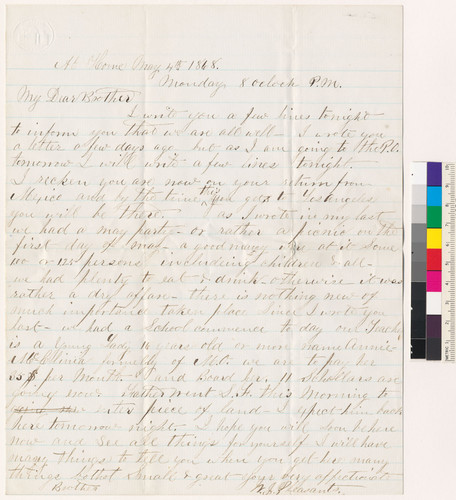 At Home May 4th 1868.
Monday, 8 oclock P.M.
My Dear Brother
I writ you a few lines tonight
to inform you that we are all well - I wrote you
a letter a few days ago but as I am going to the P.O.
tomorrow I will write a few lines tonight.
I recken you are now on your return from
Mexico and by the time this gets to Los angeles
you will be there. as I wrote in my last
we had a may party - or rather a picnic on the
first day of may - a good many were at it some
100 or 125 persons including children & all -
we had plenty to eat & drink - otherwise it was
rather a dry affair - there is nothing new of
much importance taken place since I wrote you
last - we had a School commence to day our Teacher
is a young lady 18 years old or more name
formerly of we are to pay her
35$ per Month and Board her. 11 Schollars are
going now. Father went S.F. this Morning to
enter piece of land - I expect him back
here tomorrow night. I hope you will soon be here
now and see as things for yourself I will have
many things to tell you when you get here many
things both Small & great your very affectionate
Brother Pleasants